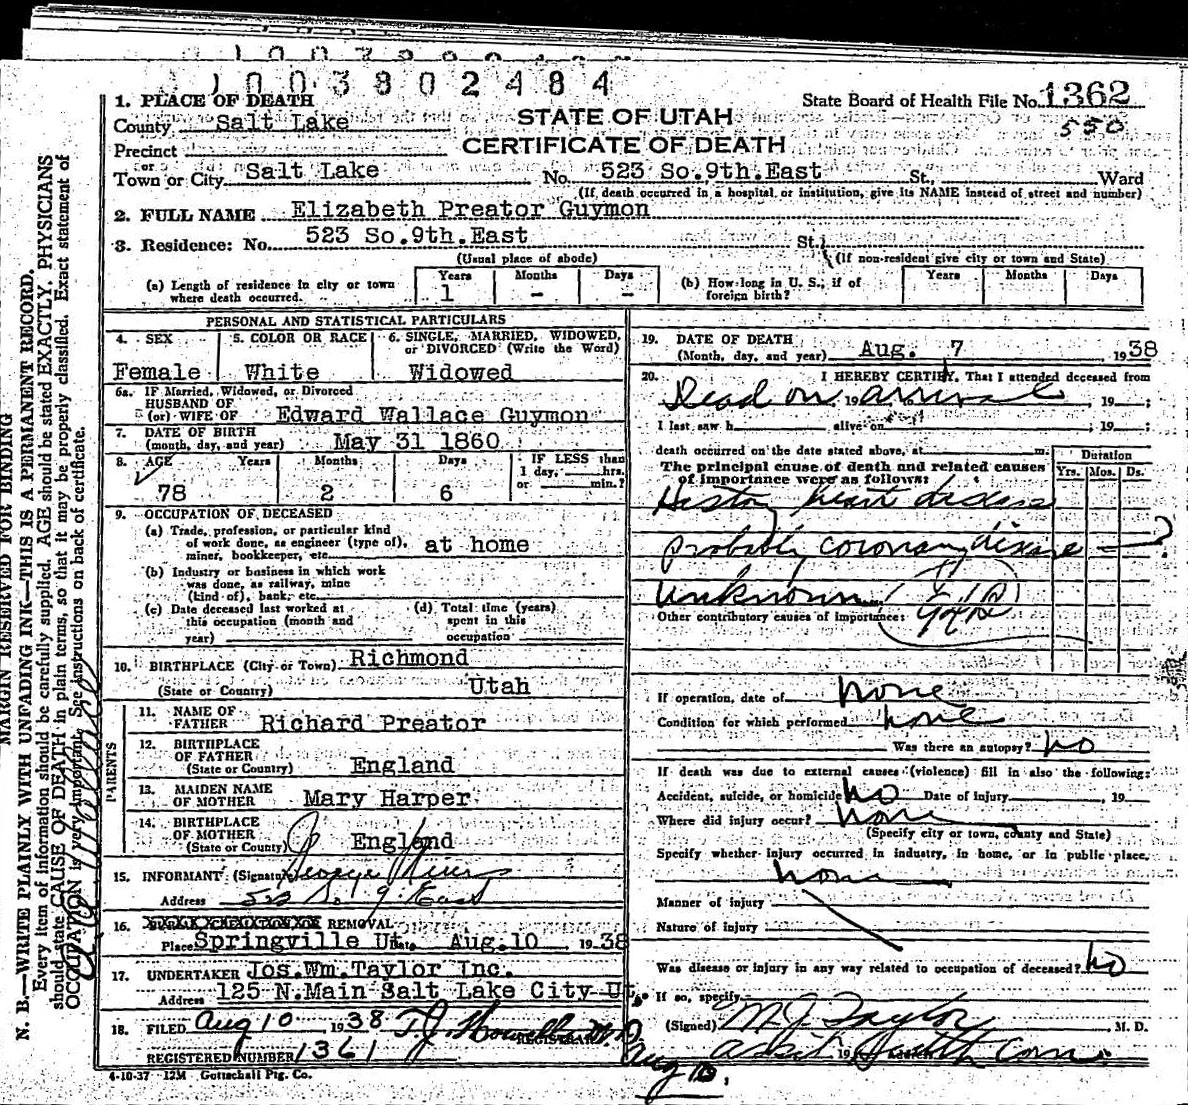 1003802484
1. PLACE OF DEATH
State Board of Health File No. 1362
County Salt Lake
STATE OF UTAH
550
Precinct
CERTIFICATE OF DEATH
or
Town or City Salt Lake No. 523 So.9th.East St., Ward
(If death occurred in a hospital or institution, give its NAME instead of street and number)
2. FULL NAME Elizabeth Preator Guymon
3. Residence: No. 523 So.9th.East St.
(Usual place of abode)
(If non-resident give city or town and State)
(a) Length of residence in city or town where death occurred. Years 1 Months - Days -
(b) How long in U. S., if of foreign birth? Years Months Days
PERSONAL AND STATISTICAL PARTICULARS
4. SEX
Female
5. COLOR OR RACE
White
6. SINGLE, MARRIED, WIDOWED, or DIVORCED (Write the Word)
Widowed
6a. IF Married, Widowed, or Divorced
HUSBAND OF
(or) WIFE OF Edward Wallace Guymon
7. DATE OF BIRTH
(month, day, and year) May 31 1860
8. AGE Years Months Days
78 2 6
IF LESS than
1 day, hrs.
or min.?
9. OCCUPATION OF DECEASED
(a) Trade, profession, or particular kind
of work done, as engineer (type of), at home
miner, bookkeeper, etc.
(b) Industry or business in which work
was done, as railway, mine
(kind of), bank, etc.
(c) Date deceased last worked at
this occupation (month and
year)
(d) Total time (years)
spent in this
occupation
10. BIRTHPLACE (City or Town) Richmond
(State or Country) Utah
PARENTS
11. NAME OF
FATHER Richard Preator
12. BIRTHPLACE
OF FATHER
(State or Country) England
13. MAIDEN NAME
OF MOTHER Mary Harper
14. BIRTHPLACE
OF MOTHER
(State or Country) England
15. INFORMANT (Signature) George
Address 523 So. 9 East
16. REMOVAL
Place Springville Ut. Date Aug.10 1938
17. UNDERTAKER Jos.Wm.Taylor Inc.
Address 125 N.Main Salt Lake City Ut.
18. FILED Aug 10 1938 T.J. Howells M.D.
REGISTRAR
REGISTERED NUMBER 1361
4-10-37 12M Gottschall Ptg. Co.
19. DATE OF DEATH
(Month, day, and year) Aug. 7 1938
20. I HEREBY CERTIFY, That I attended deceased from
Dead on 19 arrival , 19 ;
I last saw h alive on ; 19 ;
death occurred on the date stated above, at m.
The principal cause of death and related causes
of importance were as follows:
Duration
Yrs. Mos. Ds.
History heart disease
probably coronary disease — ?
Unknown
Other contributory causes of importance:
If operation, date of none
Condition for which performed none
Was there an autopsy? no
If death was due to external causes (violence) fill in also the following:
Accident, suicide, or homicide no Date of injury , 19
Where did injury occur? none
(Specify city or town, county and State)
Specify whether injury occurred in industry, in home, or in public place.
none
Manner of injury
Nature of injury
Was disease or injury in any way related to occupation of deceased? no
If so, specify
(Signed) M.J. Taylor , M. D.
asst 19 Health Com.
Aug 10
MARGIN RESERVED FOR BINDING
N. B.—WRITE PLAINLY WITH UNFADING INK—THIS IS A PERMANENT RECORD.
Every item of information should be carefully supplied. AGE should be stated EXACTLY. PHYSICIANS
should state CAUSE OF DEATH in plain terms, so that it may be properly classified. Exact statement of
OCCUPATION is very important. See instructions on back of certificate.